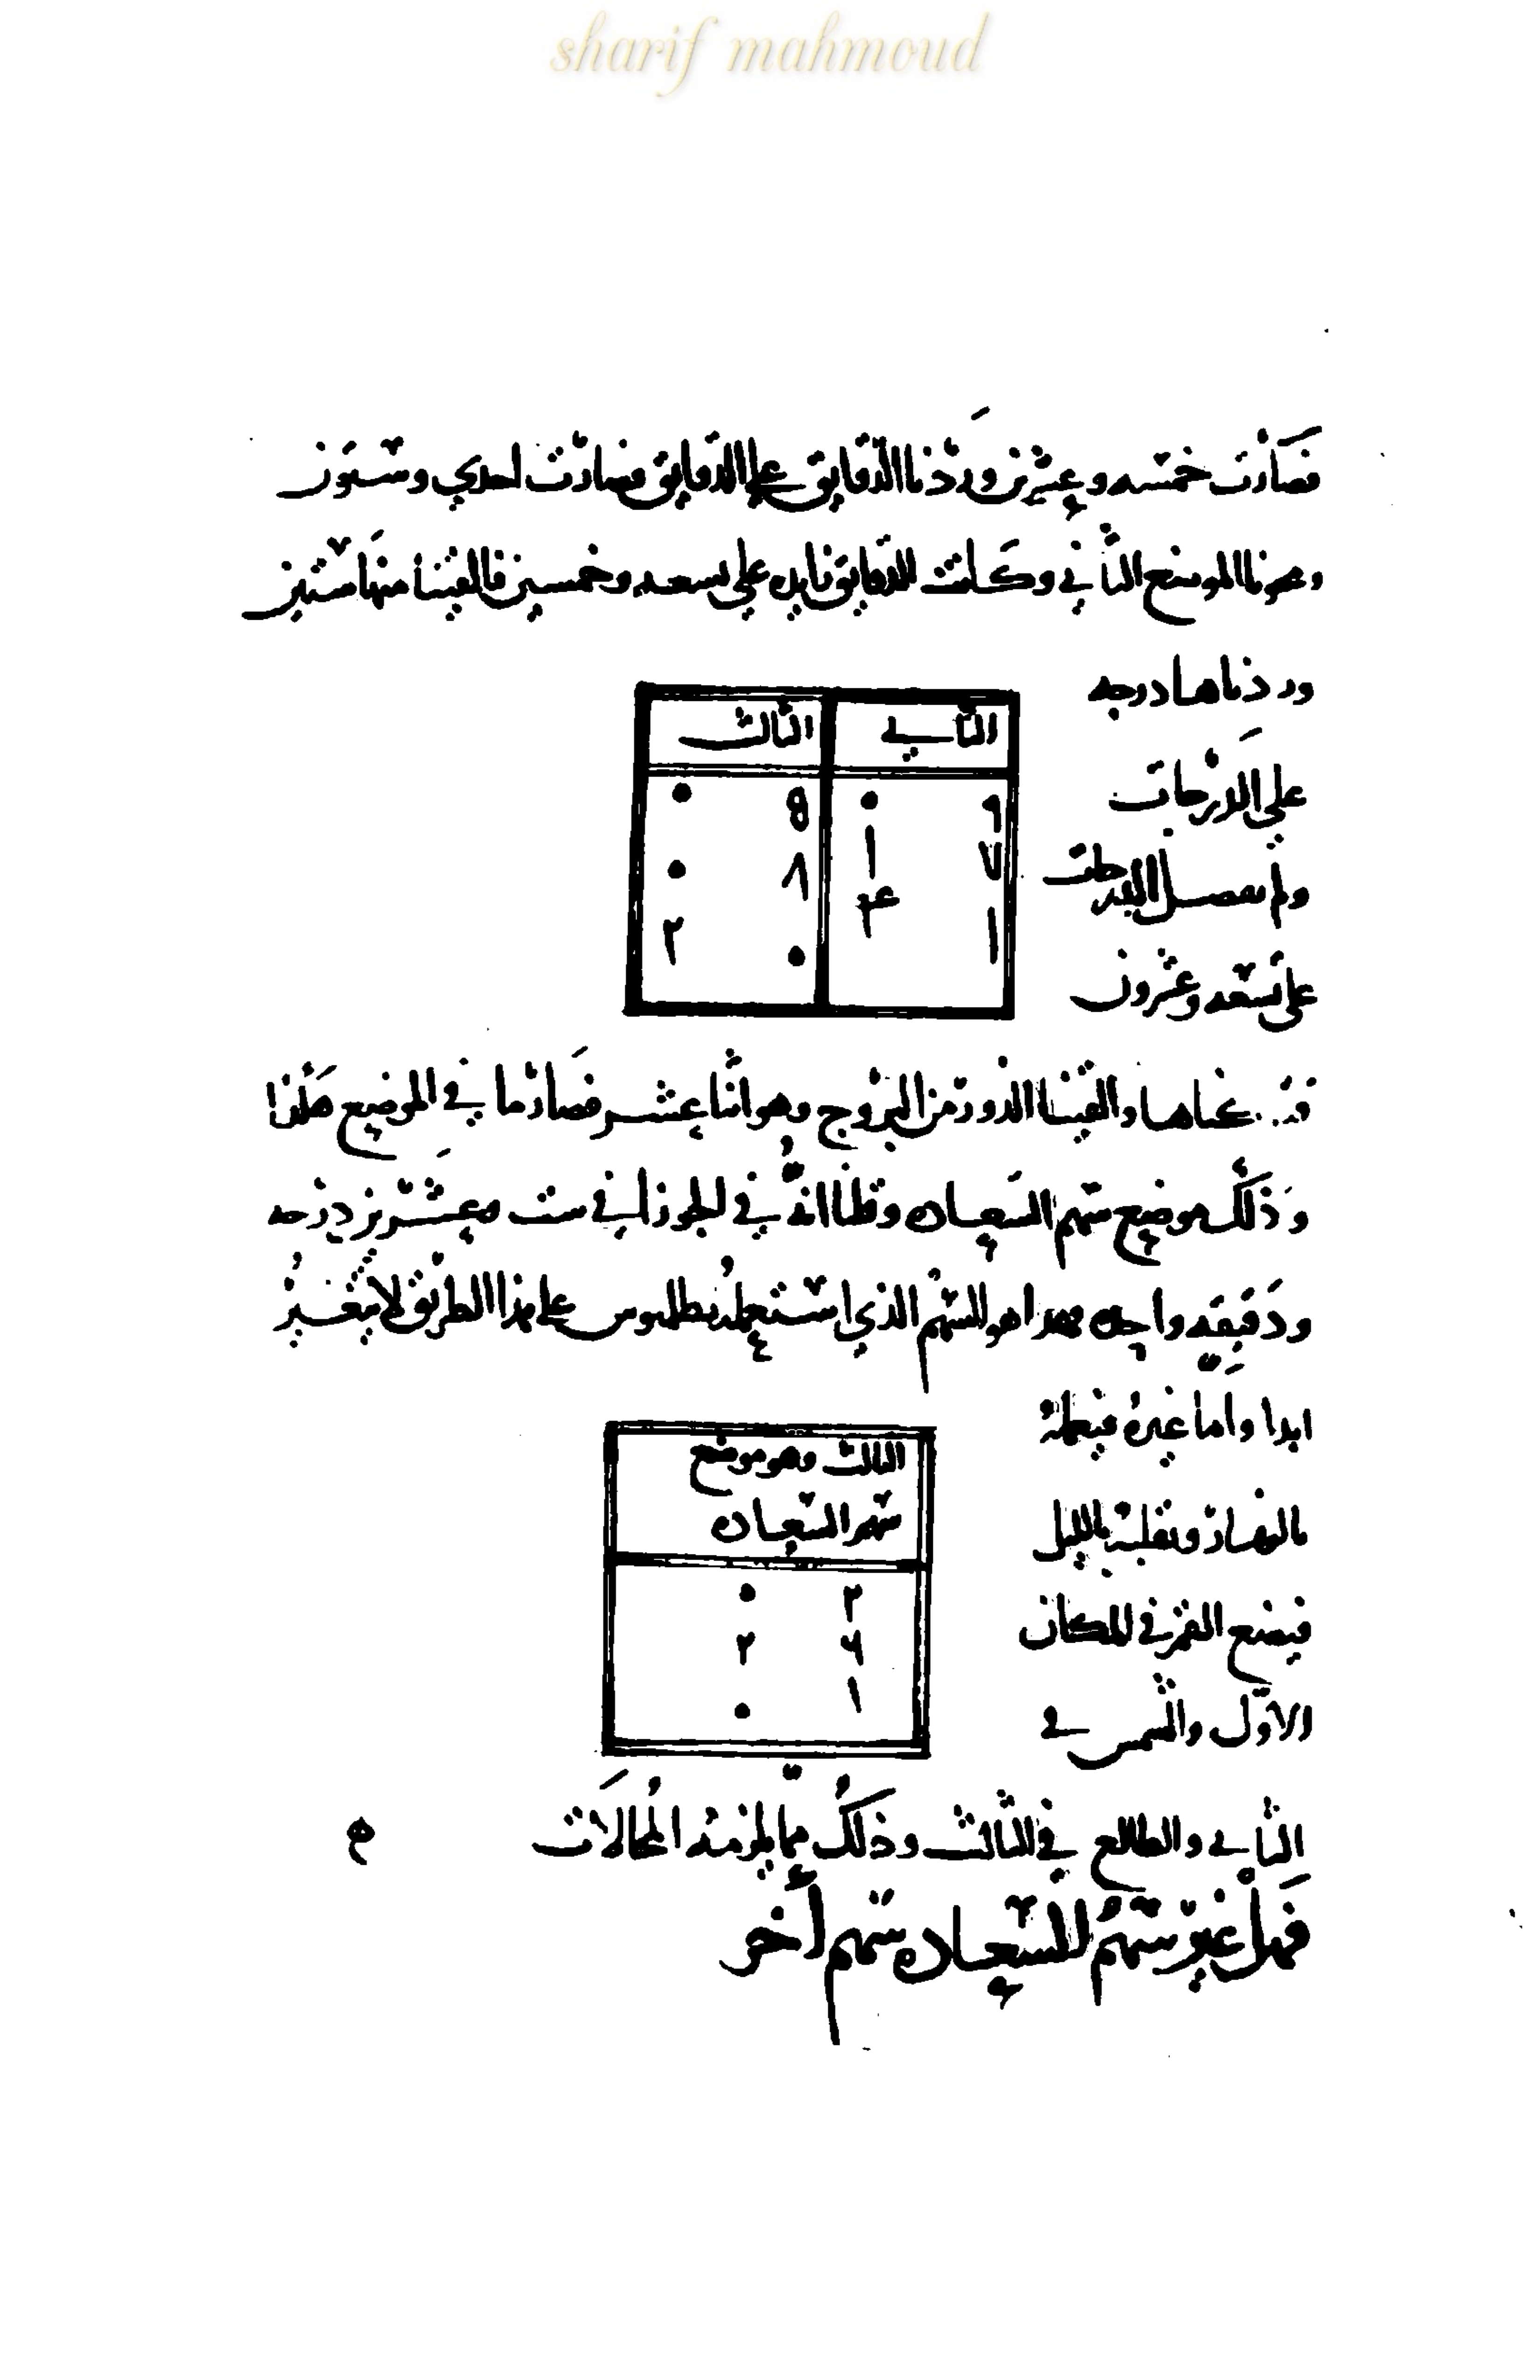 sharif mahmoud
فصارت خمسه وعشرين وردنا الدقايق علي الدقايق فصارت احدي وستون
ومحونا الموضع الثاني وكانت الدقايق زايده علي تسعه وخمسين فالقينا منها ستين
وردناها درجه
علي الدرجات
ولم تحصل الدرجات
علي تسعه وعشرون
الثاني الثالث
٩ ٠ ٥ ٠
٧ ١ ٨ ٠
١ ٤ ٠ ٢
والقينا الدور من البروج وهو اثنا عشر فصار ما في الموضع هكذا
وذلك موضع سهم السعاده وقلنا انه في الجوزا في ست وعشرين درجه
ودقيقه واحده فهذا هو السهم الذي استعمله بطلميوس علي هذا الطريق لا يتغير
ابدا واما غيره فيعمله
بالنهار ويقلبه بالليل
فيضع القمر في المكان
الاول والشمس في
الثالث وهو موضع
سهم السعاده
٢ ٠
٦ ٢
١ ٠
الثاني والطالع في الثالث وذلك مما يلزمنه المحالات
فهل غير سهم السعاده سهم أخر